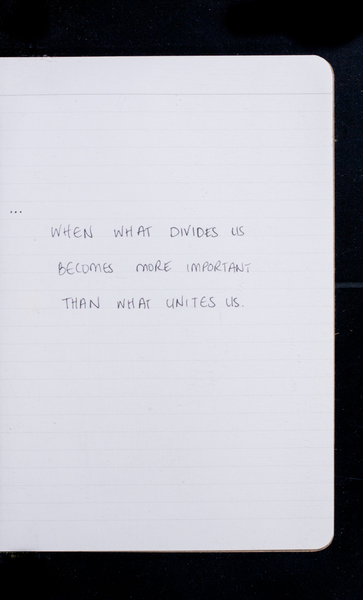 ...
WHEN WHAT DIVIDES US
BECOMES MORE IMPORTANT
THAN WHAT UNITES US.